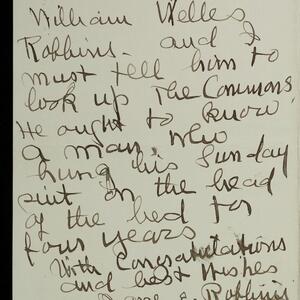 William Welles
Robbins - and I
must tell him to
look up The Commons
He ought to know
a man who
hung his Sunday
suit on the head
of the bed for
four years
With Congratulations
and best wishes
Robbins